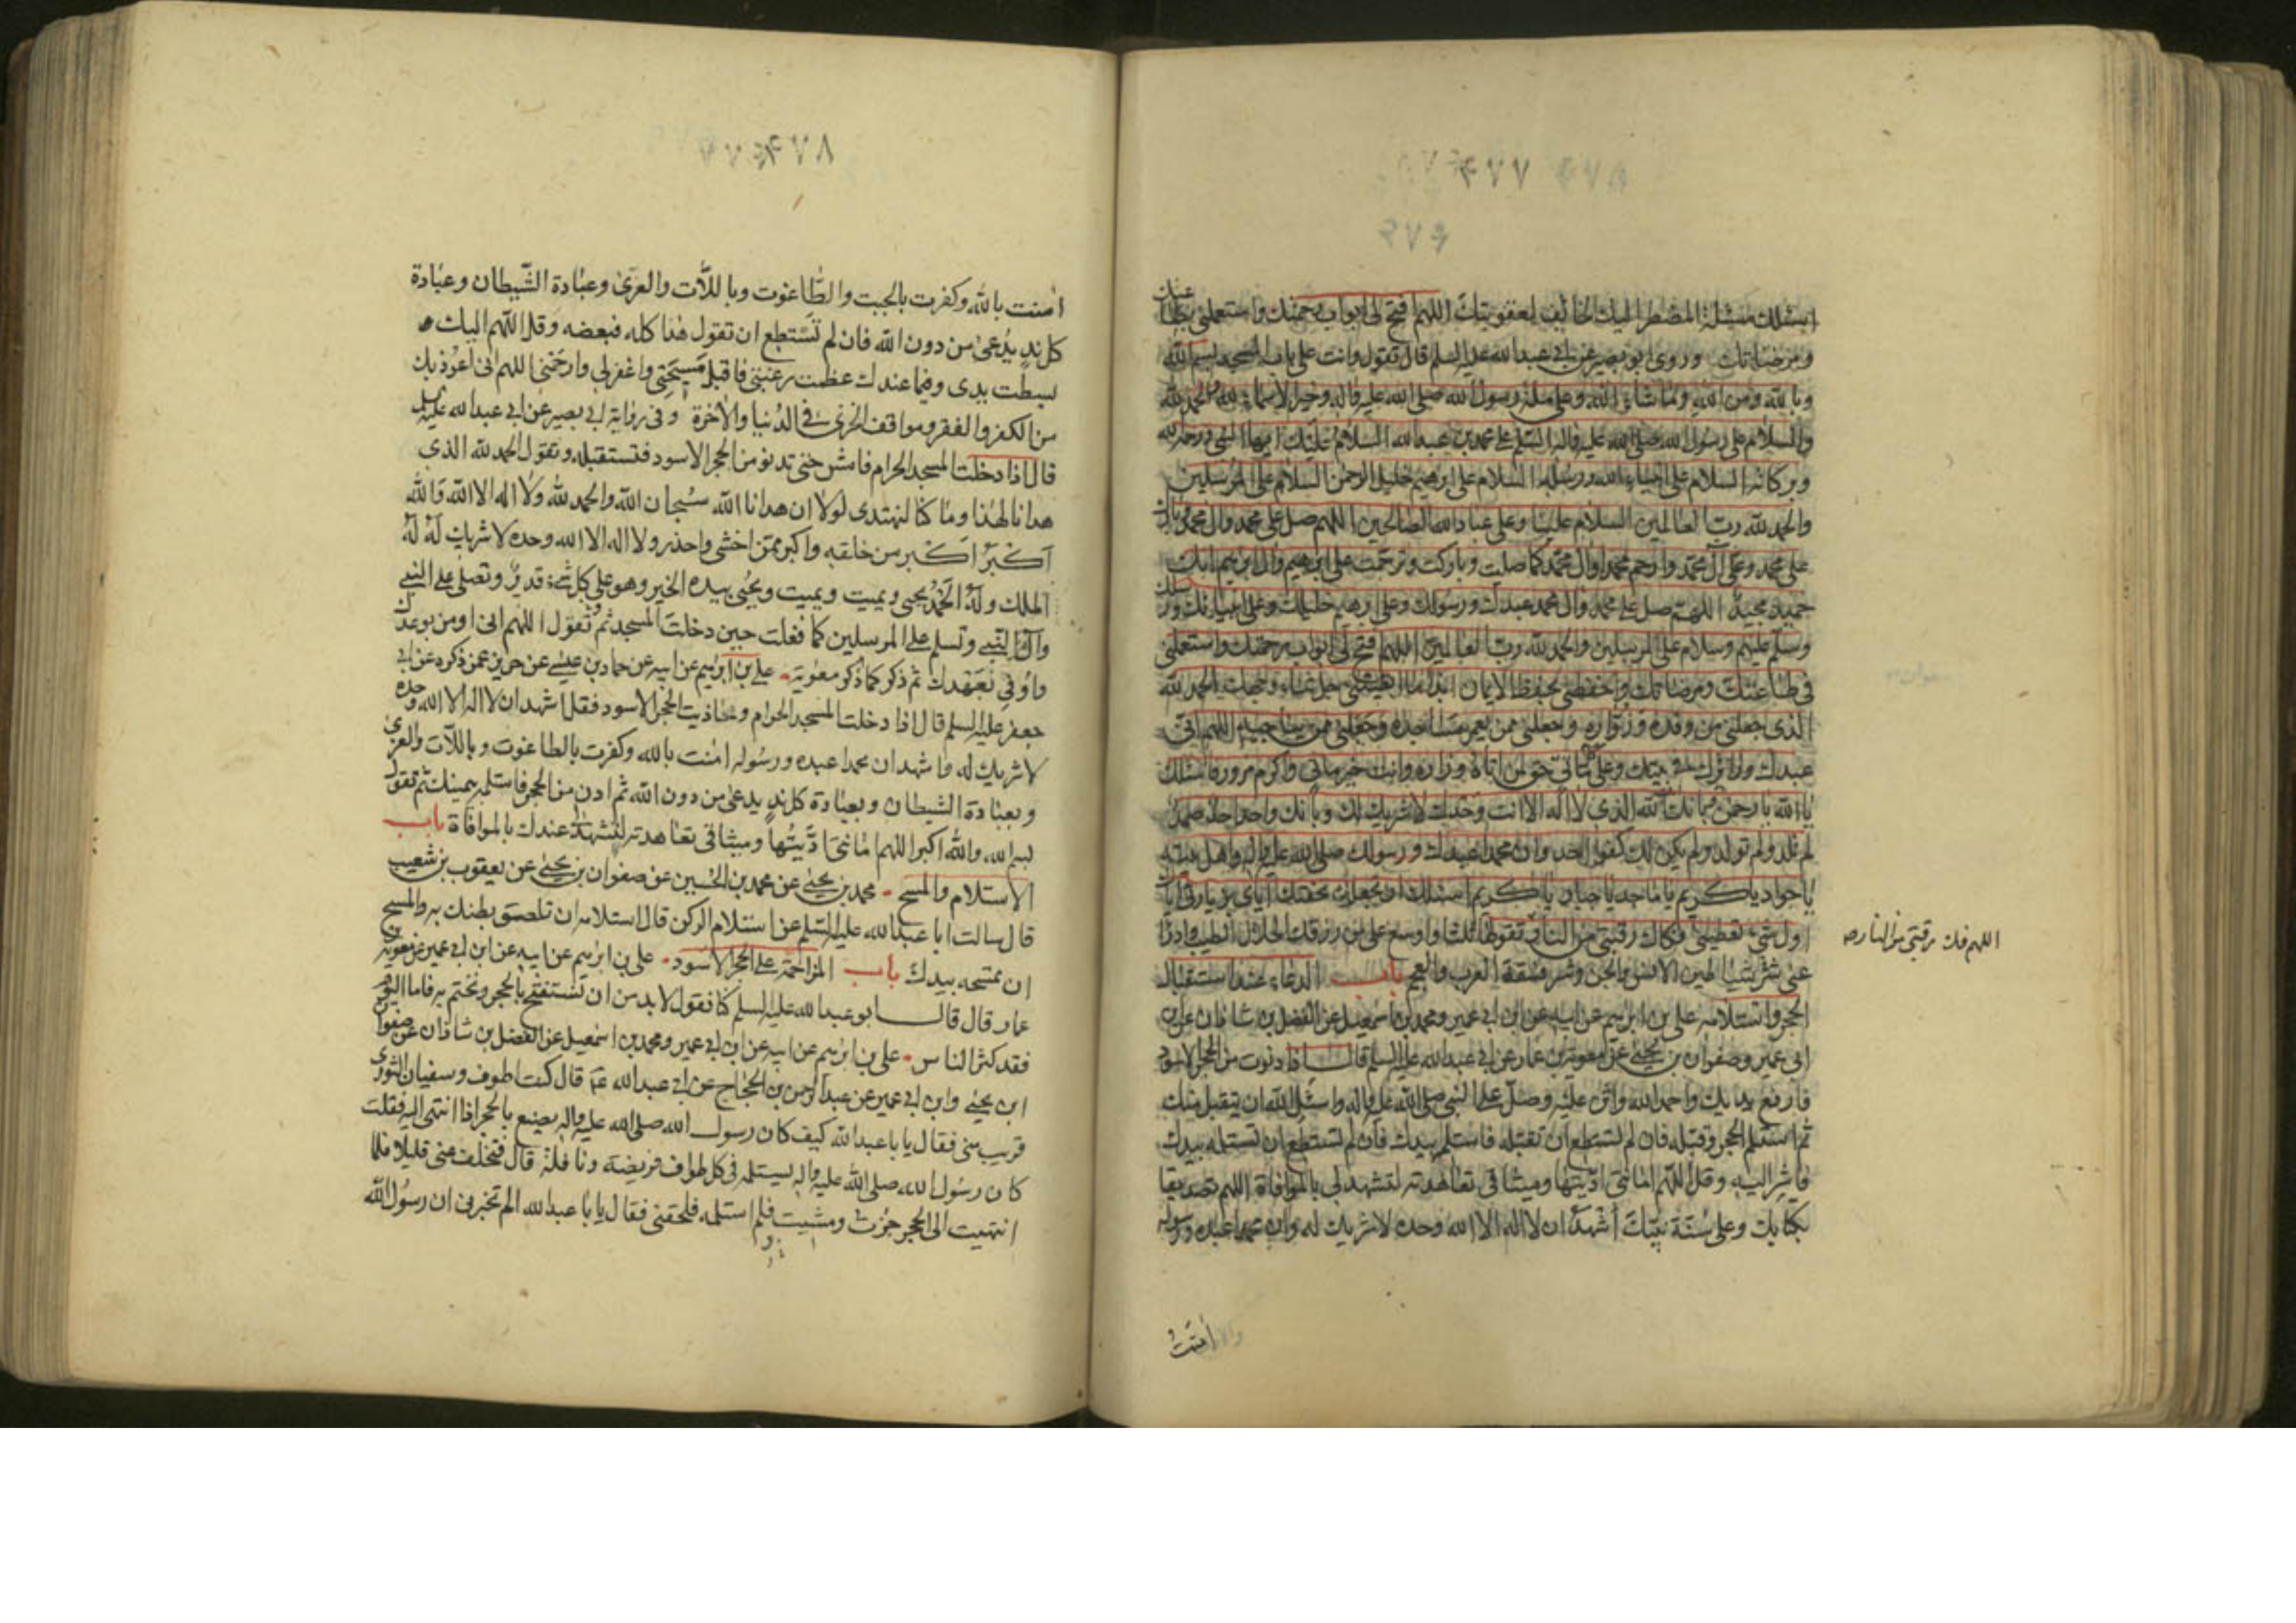 ۴۷۷
اسئلك مسئلة المضطر اليك الخائف لعقوبتك اللهم افتح لي ابواب رحمتك واستعملني بطاعتك
ومرضاتك وروى ابو بصير عن ابي عبدالله عليه السلم قال تقول وانت على باب المسجد بسم الله
وبالله ومن الله وما شاء الله وعلى ملة رسول الله صلى الله عليه واله وخير الاسماء لله والحمد لله
والسلام على رسول الله صلى الله عليه واله السلم على محمد بن عبدالله السلام عليك ايها النبي ورحمة الله
وبركاته السلام على انبياء الله ورسله السلام على ابرهيم خليل الرحمن السلام على المرسلين
والحمد لله رب العالمين السلام علينا وعلى عباد الله الصالحين اللهم صل على محمد وال محمد وبارك
على محمد وعلى آل محمد وارحم محمدا وال محمد كما صليت وباركت وترحمت على ابرهيم وال ابرهيم انك
حميد مجيد اللهم صل على محمد وال محمد عبدك ورسولك وعلى ابرهيم خليلك وعلى انبيائك ورسلك
وسلم عليهم وسلام على المرسلين والحمد لله رب العالمين اللهم افتح لي ابواب رحمتك واستعملني
في طاعتك ومرضاتك واحفظني بحفظ الايمان ابدا ما ابقيتني جل ثناء وجهك الحمد لله
الذي جعلني من وفده وزواره وجعلني ممن يعمر مساجده وجعلني ممن يناجيه اللهم اني
عبدك وزائرك في بيتك وعلى كل ماتي حق لمن اتاه وزاره وانت خير ماتي واكرم مزور فاسئلك
يا الله يا رحمن بانك الله الذي لا اله الا انت وحدك لا شريك لك وبانك واحد احد صمد
لم تلد ولم تولد ولم يكن لك كفوا احد وان محمدا عبدك ورسولك صلى الله عليه واله واهل بيته
يا جواد يا كريم يا ماجد يا جبار يا كريم اسئلك ان تجعل تحفتك اياي بزيارتي اياك
اول شيء تعطيني فكاك رقبتي من النار تقولها ثلثا واوسع علي من رزقك الحلال الطيب وادرا
عني شر شياطين الانس والجن وشر فسقة العرب والعجم باب الدعاء عند استقبال
الحجر واستلامه علي بن ابرهيم عن ابيه عن ابن ابي عمير ومحمد بن اسمعيل عن الفضل بن شاذان عن ابن
ابي عمير وصفوان بن يحيى عن معوية بن عمار عن ابي عبدالله عليه السلم قال اذا دنوت من الحجر الاسود
فارفع يديك واحمد الله واثن عليه وصل على النبي صلى الله عليه واله واسئل الله ان يتقبل منك
ثم استلم الحجر وقبله فان لم تستطع ان تقبله فاستلمه بيدك فان لم تستطع ان تستلمه بيدك
فاشر اليه وقل اللهم امانتي اديتها وميثاقي تعاهدته لتشهد لي بالموافاة اللهم تصديقا
بكتابك وعلى سنة نبيك اشهد ان لا اله الا الله وحده لا شريك له وان محمدا عبده ورسوله
امنت
اللهم فك رقبتي من النار صه
۴۷۸
امنت بالله وكفرت بالجبت والطاغوت وباللات والعزى وعبادة الشيطان وعبادة
كل ند يدعى من دون الله فان لم تستطع ان تقول هذا كله فبعضه وقل اللهم اليك
بسطت يدي وفيما عندك عظمت رغبتي فاقبل مسيحتي واغفر لي وارحمني اللهم اني اعوذ بك
من الكفر والفقر ومواقف الخزي في الدنيا والاخرة وفي رواية ابي بصير عن ابي عبدالله عليه السلم
قال اذا دخلت المسجد الحرام فامش حتى تدنو من الحجر الاسود فتستقبله وتقول الحمد لله الذي
هدانا لهذا وما كنا لنهتدي لولا ان هدانا الله سبحان الله والحمد لله ولا اله الا الله والله
اكبر اكبر من خلقه واكبر ممن اخشى واحذر ولا اله الا الله وحده لا شريك له له
الملك وله الحمد يحيي ويميت ويميت ويحيي بيده الخير وهو على كل شيء قدير وتصلي على النبي
وال النبي وتسلم على المرسلين كما فعلت حين دخلت المسجد ثم تقول اللهم اني اومن بوعدك
واوفي بعهدك ثم ذكر كما ذكر معوية علي بن ابرهيم عن ابيه عن حماد بن عيسى عن حريز عمن ذكره عن ابي
جعفر عليه السلم قال اذا دخلت المسجد الحرام وحاذيت الحجر الاسود فقل اشهد ان لا اله الا الله وحده
لا شريك له واشهد ان محمدا عبده ورسوله امنت بالله وكفرت بالطاغوت وباللات والعزى
وبعبادة الشيطان وبعبادة كل ند يدعى من دون الله ثم ادن من الحجر فاستلمه بيمينك ثم تقول
بسم الله والله اكبر اللهم امانتي اديتها وميثاقي تعاهدته لتشهد عندك بالموافاة باب
الاستلام والمسح محمد بن يحيى عن محمد بن الحسين عن صفوان بن يحيى عن يعقوب بن شعيب
قال سالت ابا عبدالله عليه السلم عن استلام الركن قال استلامه ان تلصق بطنك به والمسح
ان تمسحه بيدك باب المزاحمة على الحجر الاسود علي بن ابرهيم عن ابيه عن ابن ابي عمير عن معوية بن
عمار قال قال ابو عبدالله عليه السلم كنا نقول لا بد من ان نستفتح بالحجر ونختم به فاما اليوم
فقد كثر الناس علي بن ابرهيم عن ابيه عن ابن ابي عمير ومحمد بن اسمعيل عن الفضل بن شاذان عن صفوان
ابن يحيى وابن ابي عمير عن عبد الرحمن بن الحجاج عن ابي عبدالله ع قال كنت اطوف وسفيان الثوري
قريب مني فقال يا با عبدالله كيف كان رسول الله صلى الله عليه واله يصنع بالحجر اذا انتهى اليه فقلت
كان رسول الله صلى الله عليه واله يستلمه في كل طواف فريضة ونافلة قال فتخلف عني قليلا فلما
انتهيت الى الحجر جزت ومشيت فلم استلمه فلحقني فقال يا با عبدالله الم تخبرني ان رسول الله